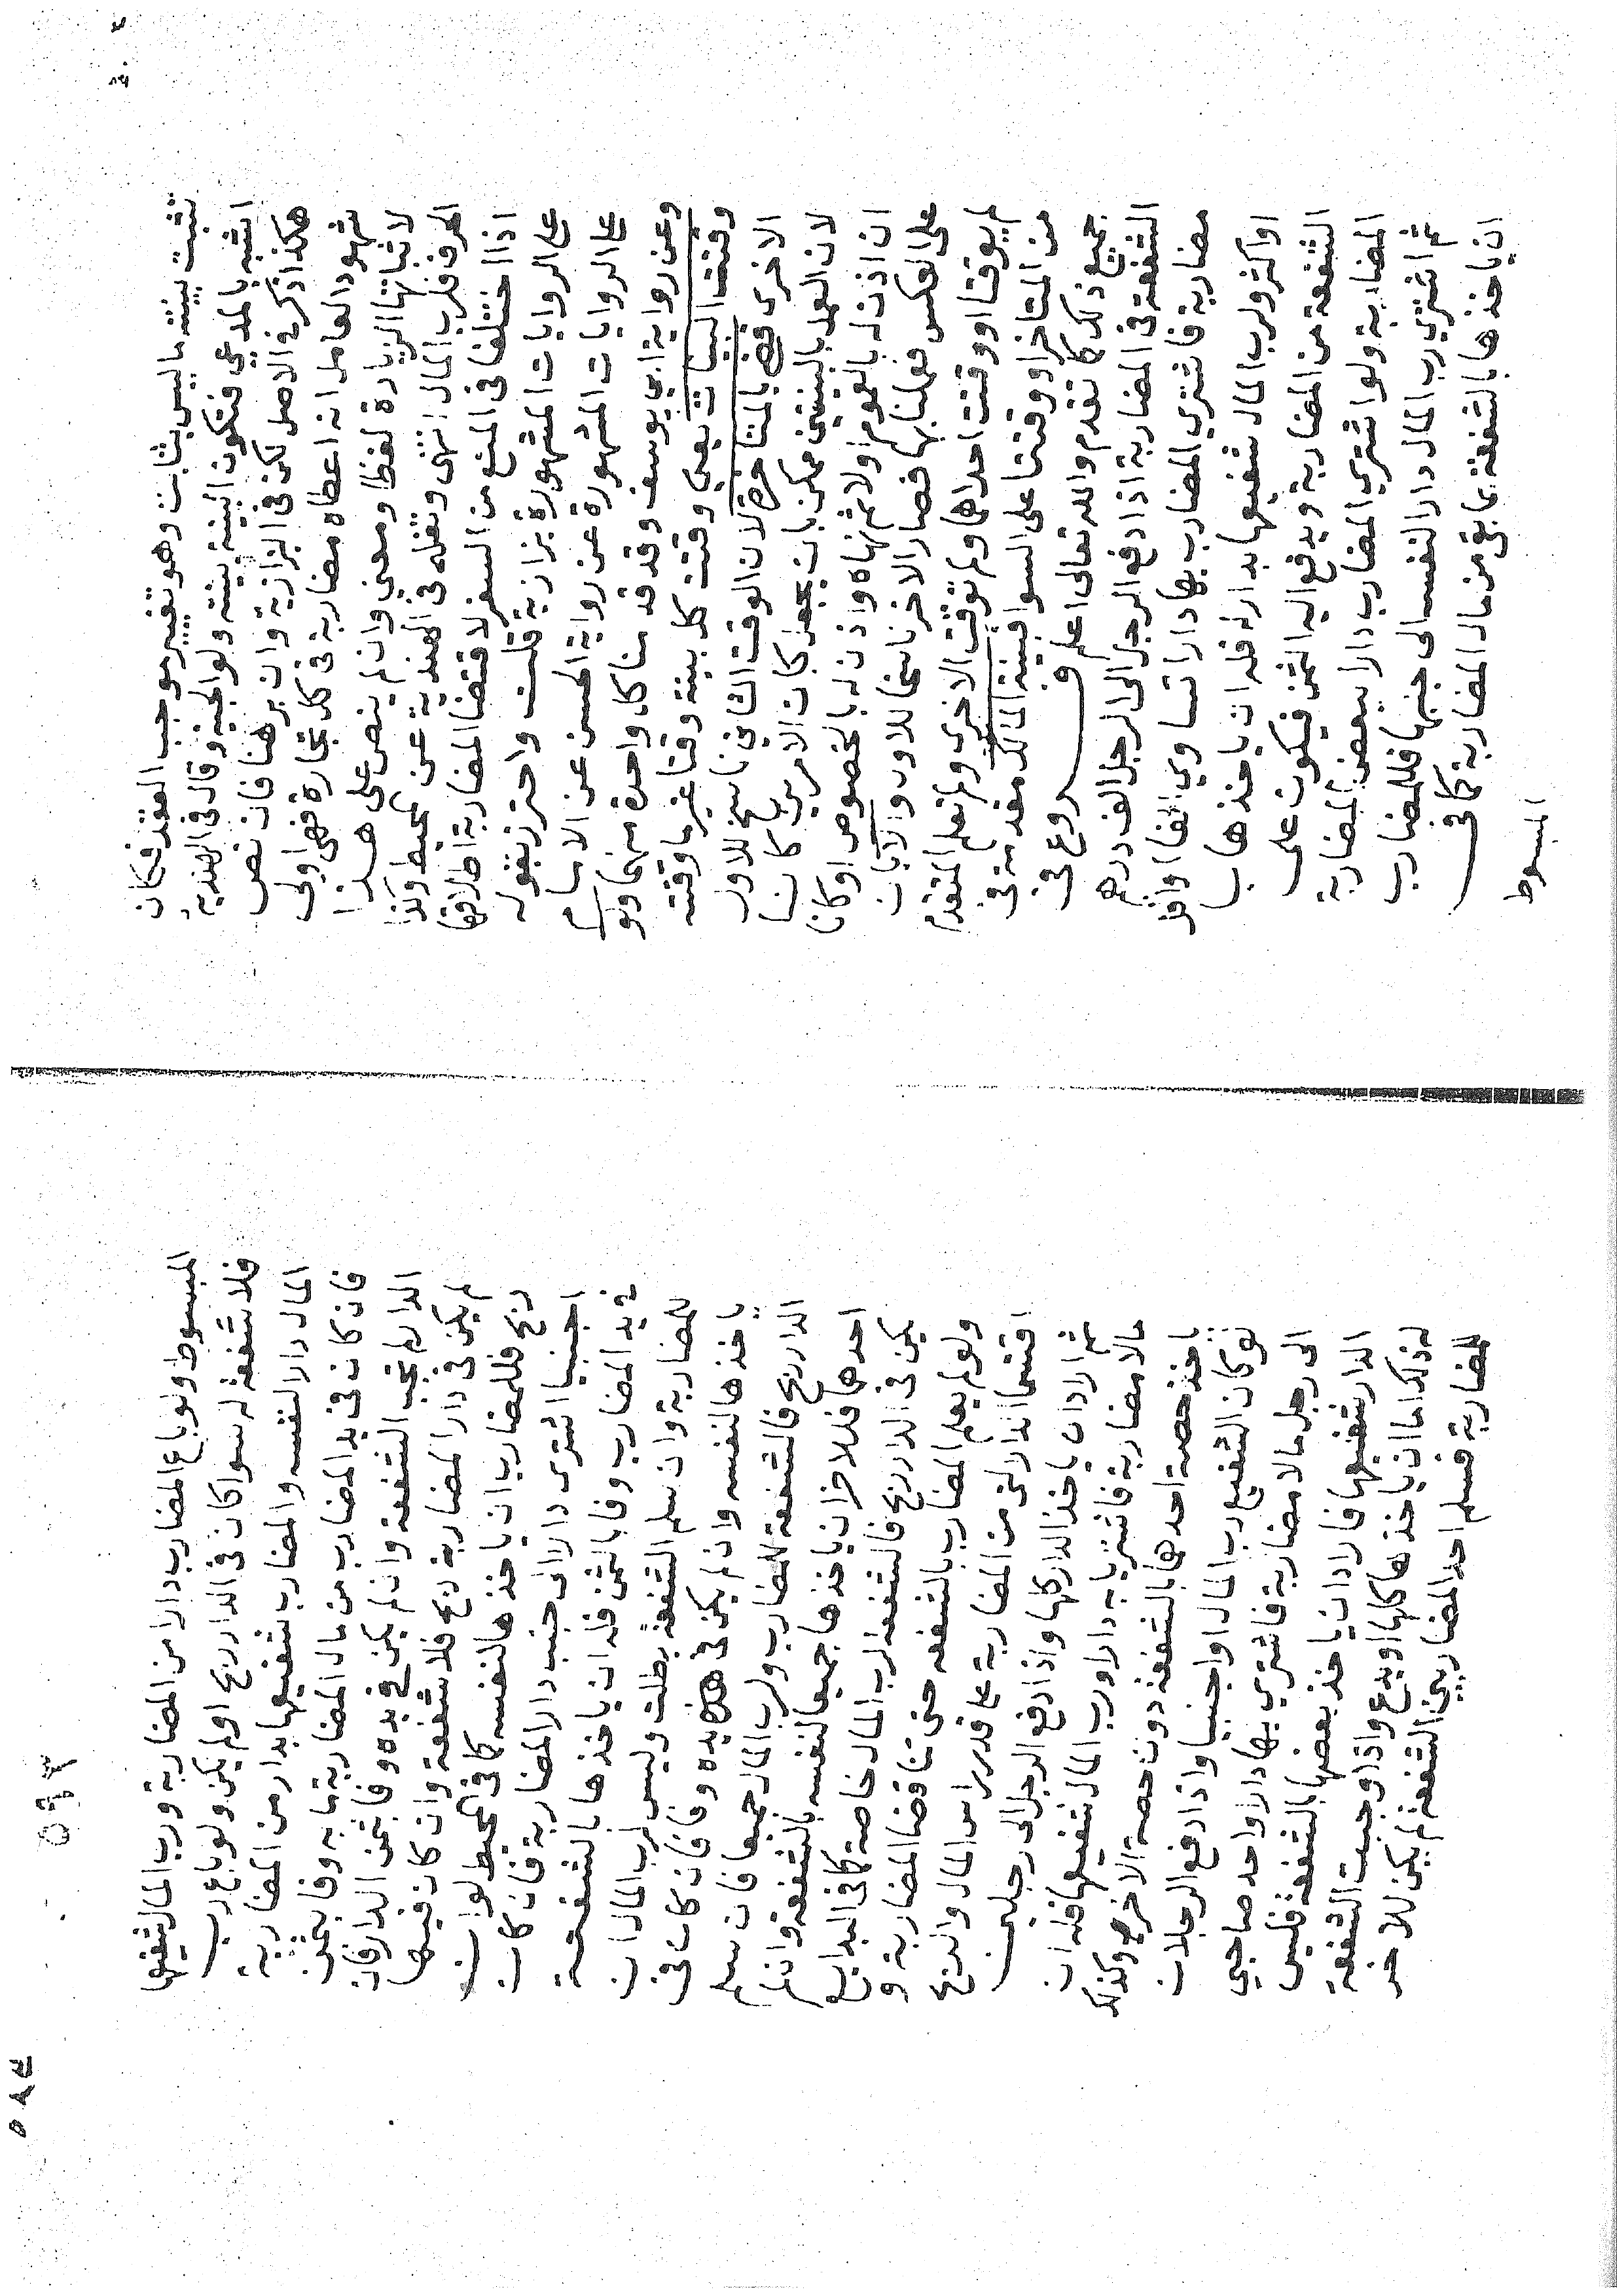 تثبت بينته ما ليس بثابت وهو تغيير موجب العقد فكان
اشبه بالمدعي فتكون البينة بينته ولوالجية وقال في الهندية
هكذا ذكر في الاصل لكن في البزازية وان برهنا فان نص
شهود العامل انه اعطاه مضاربة في كل تجارة فهي اولى
لاثباتها الزيادة لفظا ومعني وان لم ينص على هذا
الحرف فلرب المال انتهى ونقله في الهندية عن المحيط وكذا
اذا اختلفا في المنع من السفر لاقتضا المضاربة اطلاقها
على الروايات المشهورة بزازية قلت واحترز بقوله
على الروايات المشهورة عن رواية الحسن عن الامام
وعن رواية ابي يوسف وقد قدمنا كل واحدة منهما ولو
وقتت البينات يعني وقتت كل بينة وقتا غير ما وقتته
الاخرى قضي بالمتاخرة لان الوقت الثاني ناسخ للاول
لان العمل بالبينتين ممكن بان يجعل كان الامرين كانا
ان اذن له بالعموم اولا ثم نهاه واذن له بالخصوص او كانا
على العكس فعملنا بها فصار الاخر ناسخا للاول والا بان
لم يوقتا او وقتت احداهما ولم توقت الاخرى ولم تعلم المتقدم
من المتاخر او وقتتا على السوا فبينة المالك مقدمة في
جميع ذلك كما تقدم والله تعالى اعلم فروع في
الشفعة في المضاربة اذا دفع الرجل الى الرجل الف درهم
مضاربة فاشتري المضارب بها دارا تساوي الفا او اقل
او اكثر ورب المال شفيعها بدار له فله ان ياخذها ب
الشفعة من المضاربة ويدفع اليه الثمن فيكون على
المضاربة ولو اشتري المضارب دارا ببعض المضاربة
ثم اشتري رب المال دارا لنفسه الى جنبها فللمضارب
ان ياخذها بالشفعة بما بقي من مال المضاربة كما في
المبسوط
المبسوط ولو باع المضارب دارا من المضاربة ورب المال شفيعها
فلا شفعة له سوا كان في الدار ربح او لم يكن ولو باع رب
المال دارا لنفسه والمضارب شفيعها بدار من المضاربة
فان كان في يد المضارب من مال المضاربة ما به وفا بثمن
الدار لم تجب الشفعة وان لم يكن في يده وفا بثمن الدار فان
لم يكن في دار المضاربة ربح فلا شفعة وان كان فيها
ربح فللمضارب ان ياخذها لنفسه كما في المحيط لو ان
اجنبيا اشترى دارا الى جنب دار المضاربة فان كان
في يد المضارب وفا بالثمن فله ان ياخذها بالشفعة
للمضاربة وان سلم الشفعة بطلت وليس لرب المال ان
ياخذها لنفسه وان لم يكن في يده وفا فان كان في
الدار ربح فالشفعة للمضارب ولرب المال جميعا فان سلم
احدهما فللاخر ان ياخذها جميعا لنفسه بالشفعة وان لم
يكن في الدار ربح فالشفعة لرب المال خاصة كما في البدايع
ولو لم يعلم المضارب بالشفعة حتى تناقضا المضاربة و
اقتسما الدار التي من المضاربة على قدر راس المال والربح
ثم اراد ان ياخذ الدار كلها واذا دفع الرجل الى رجلين
مالا مضاربة فاشتريا به دارا ورب المال شفيعها فله ان
ياخذ حصة احدهما بالشفعة دون حصة الاخر وكذلك
لو كان الشفيع رب المال او اجنبيا واذا دفع الرجلان
الى رجل مالا مضاربة فاشتري بها دارا واحد صاحبي
الدار شفيعها فاراد ان ياخذ بعضها بالشفعة فليس
له ذلك اما ان ياخذها كلها او يدع واذا وجبت الشفعة
للمضاربة فسلم احد المضاربين الشفعة لم يكن للاخر